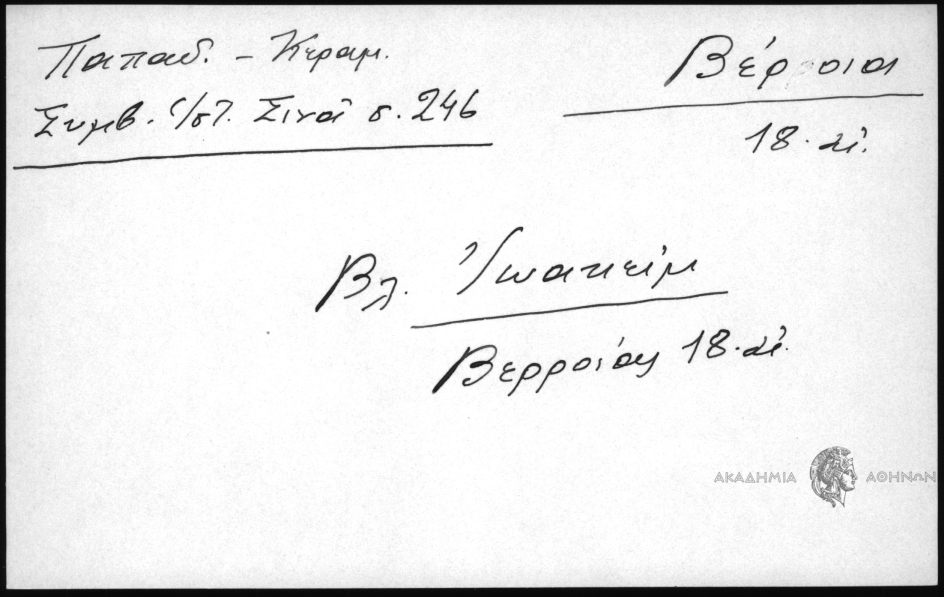 Παπαδ. - Κεραμ.
Συμβ. Ἱστ. Σινᾶ σ. 246
Βέρροια
18. αἰ.
Βλ. Ἰωακείμ
Βερροίας 18. αἰ.
ΑΚΑΔΗΜΙΑ ΑΘΗΝΩΝ